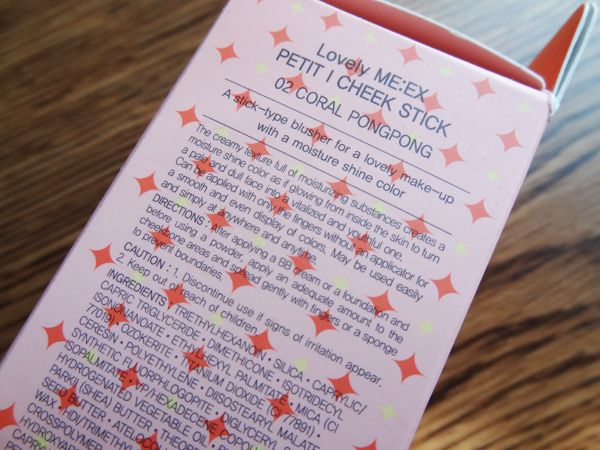 Lovely ME:EX
PETIT I CHEEK STICK
02 CORAL PONGPONG
A stick-type blusher for a lovely make-up
with a moisture shine color
The creamy texture full of moisturizing substances creates a
moisture shine color as if glowing from inside the skin to turn
a pale and dull face into a vitalized and youthful one.
Can be applied with only the fingers without an applicator for
a smooth and even display of colors. May be used easily
and simply at anywhere and anytime.
DIRECTIONS : After applying a BB cream or a foundation and
before using a powder, apply an adequate amount to the
cheekbone areas and spread gently with fingers or a sponge
to prevent boundaries.
CAUTION : 1. Discontinue use if signs of irritation appear.
2. Keep out of reach of children.
INGREDIENTS : TRIETHYLHEXANOIN • SILICA • CAPRYLIC/
CAPRIC TRIGLYCERIDE • DIMETHICONE • ISOTRIDECYL
ISONONANOATE • ETHYLHEXYL PALMITATE • MICA (CI
77019) • OZOKERITE • TITANIUM DIOXIDE (CI 77891) •
CERESIN • POLYETHYLENE • DIISOSTEARYL MALATE •
SYNTHETIC FLUORPHLOGOPITE •
ISOPALMITATE • VP/HEXADECENE COPOLYMER
HYDROGENATED VEGETABLE OIL •
PARKII (SHEA) BUTTER •
SEED BUTTER •
WAX • HDI/TRIMETHYL
CROSSPOLYMER